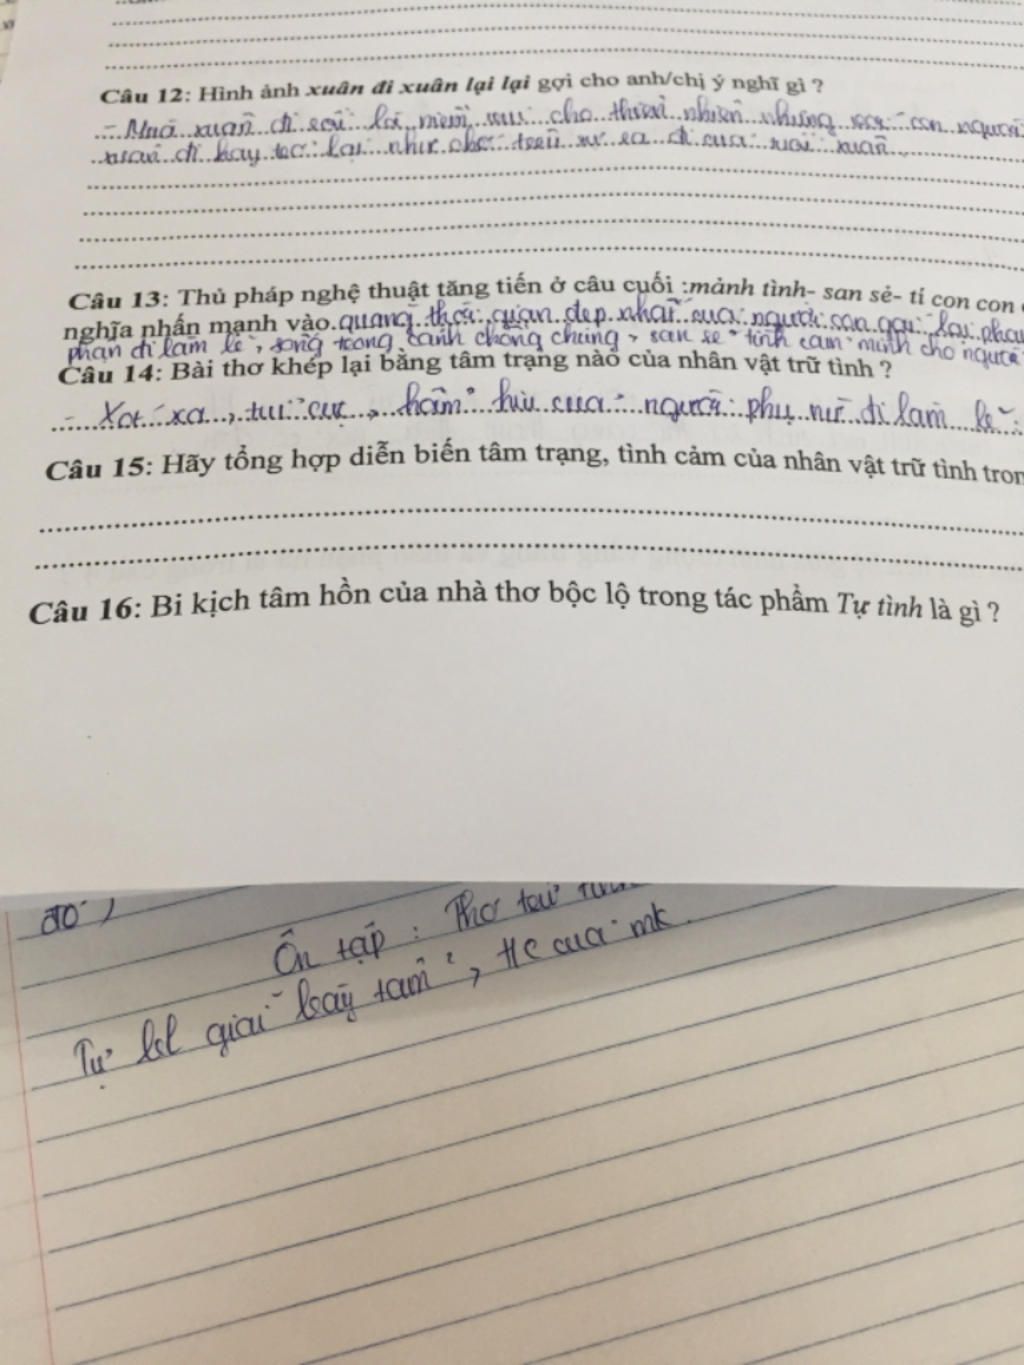 Câu 12: Hình ảnh xuân đi xuân lại lại gợi cho anh/chị ý nghĩ gì ?
- Mùa xuân đi rồi là niềm vui cho thiên nhiên nhưng con người
xuân đi hay trở lại như đi của xuân
Câu 13: Thủ pháp nghệ thuật tăng tiến ở câu cuối :mảnh tình- san sẻ- tí con con
nghĩa nhấn mạnh vào quãng thời gian đẹp nhất của người con gái lại phải
phận đi làm lẽ, sống trong cảnh chồng chung, san sẻ tình cảm mình cho người
Câu 14: Bài thơ khép lại bằng tâm trạng nào của nhân vật trữ tình ?
- Xót xa, tủi cực, hẩm hiu của người phụ nữ đi làm lẽ.
Câu 15: Hãy tổng hợp diễn biến tâm trạng, tình cảm của nhân vật trữ tình tron
Câu 16: Bi kịch tâm hồn của nhà thơ bộc lộ trong tác phẩm Tự tình là gì ?
đó )
Ôn tập : Thơ trữ
Tự giãi bày tâm , của mk